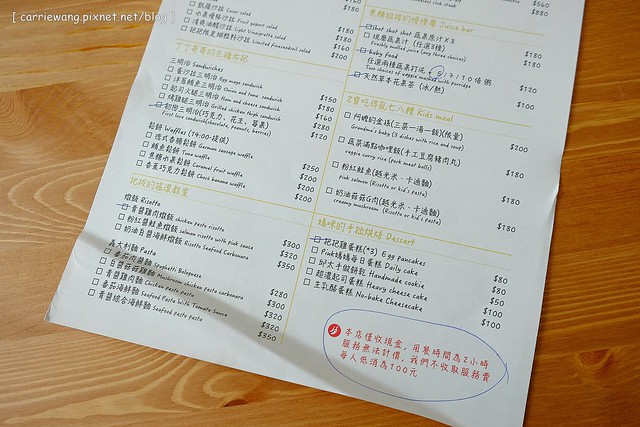 [ carriewang.pixnet.net/blog ]
凱薩沙拉 Caesar salad
水果優格沙拉 Fruit yogurt salad
清爽油醋沙拉 Light Vinaigrette salad
$180
$180
$160
$200
三明治 Sandwiches
蛋沙拉三明治 Egg mayo sandwich
$150
洋蔥鮪魚三明治 Onion and tuna sandwich
$180
起司火腿三明治 Ham and cheese sandwich
$160
烤雞腿三明治 Grilled chicken thigh sandwich
$280
初戀三明治(巧克力、花生、莓果)
$120
First love sandwich(chocolate, peanuts, berries)
鬆餅 Waffles (14:00-提供)
德式香腸鬆餅 German sausage waffle
$250
鮪魚鬆餅 Tuna waffle
$200
焦糖水果鬆餅 Caramel fruit waffle
$200
香蕉巧克力鬆餅 Choco banana waffle
$200
燉飯 Risotto
青醬雞肉燉飯 chicken pesto risotto
$300
粉紅醬鮭魚燉飯 salmon risotto with pink sauce
$320
奶油白醬海鮮燉飯 Risotto Seafood Carbonara
$350
義大利麵 Pasta
番茄肉醬麵 Spaghetti Bolognese
$280
白醬菇菇雞麵 Mushroom chicken pasta carbonara
$300
青醬雞肉麵 Chicken pesto pasta
$320
番茄海鮮麵 Seafood Pasta With Tomato Sauce
$320
青醬綜合海鮮麵 Seafood pesto pasta
$350
$560
$880
Juice bar
shot shot shot 蔬果原汁X3
$180
現磨蔬果汁 (任選3種)
$180
Freshly mulled juice (any three choices)
baby food
任選兩種蔬菜打泥 + 5 / 7 / 10 倍粥
$120
Two choices of veggie mashed with porridge
天然草本花果茶 (冰/熱)
$100
Z寶吃得亂七八糟 Kids meal
阿嬤的金孫(三菜一湯一飯)(限量)
$180
Grandma's baby (3 dishes with rice and soup)
蔬菜滿點咖哩飯(手工豆腐豬肉丸)
$180
veggie curry rice (Pork meat balls)
粉紅鮭魚(越光米、卡通麵)
$180
pink salmon (Risotto or kid's pasta)
奶油菇菇G肉(越光米、卡通麵)
$180
creamy mushroom (Risotto or kid's pasta)
媽咪的手拙烘焙 Dessert
記記雞蛋糕(*3) Egg pancakes
$80
Pink媽媽每日蛋糕 Daily cake
$80
好太手做餅乾 Handmade cookie
$50
超濃起司蛋糕 Heavy cheese cake
$100
生乳酪蛋糕 No-bake Cheesecake
$100
本店僅收現金, 用餐時間為2小時
服務無法計價, 我們不收取服務費
每人低消為100元